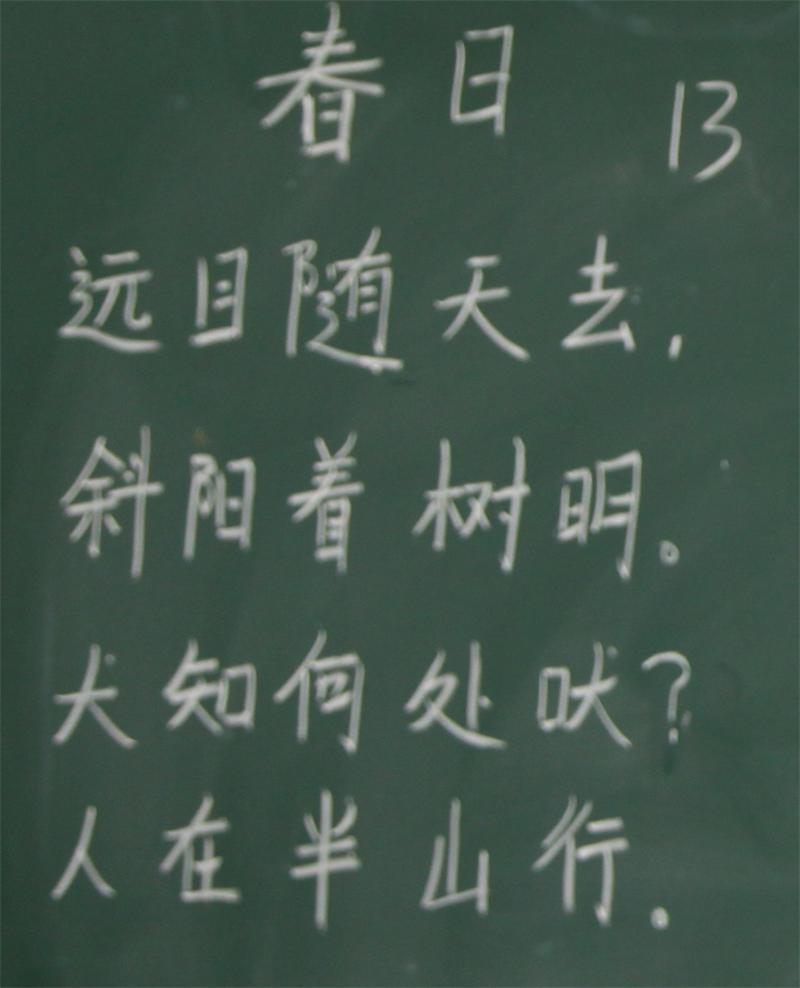 春日 13
远目随天去,
斜阳着树明。
犬知何处吠?
人在半山行。